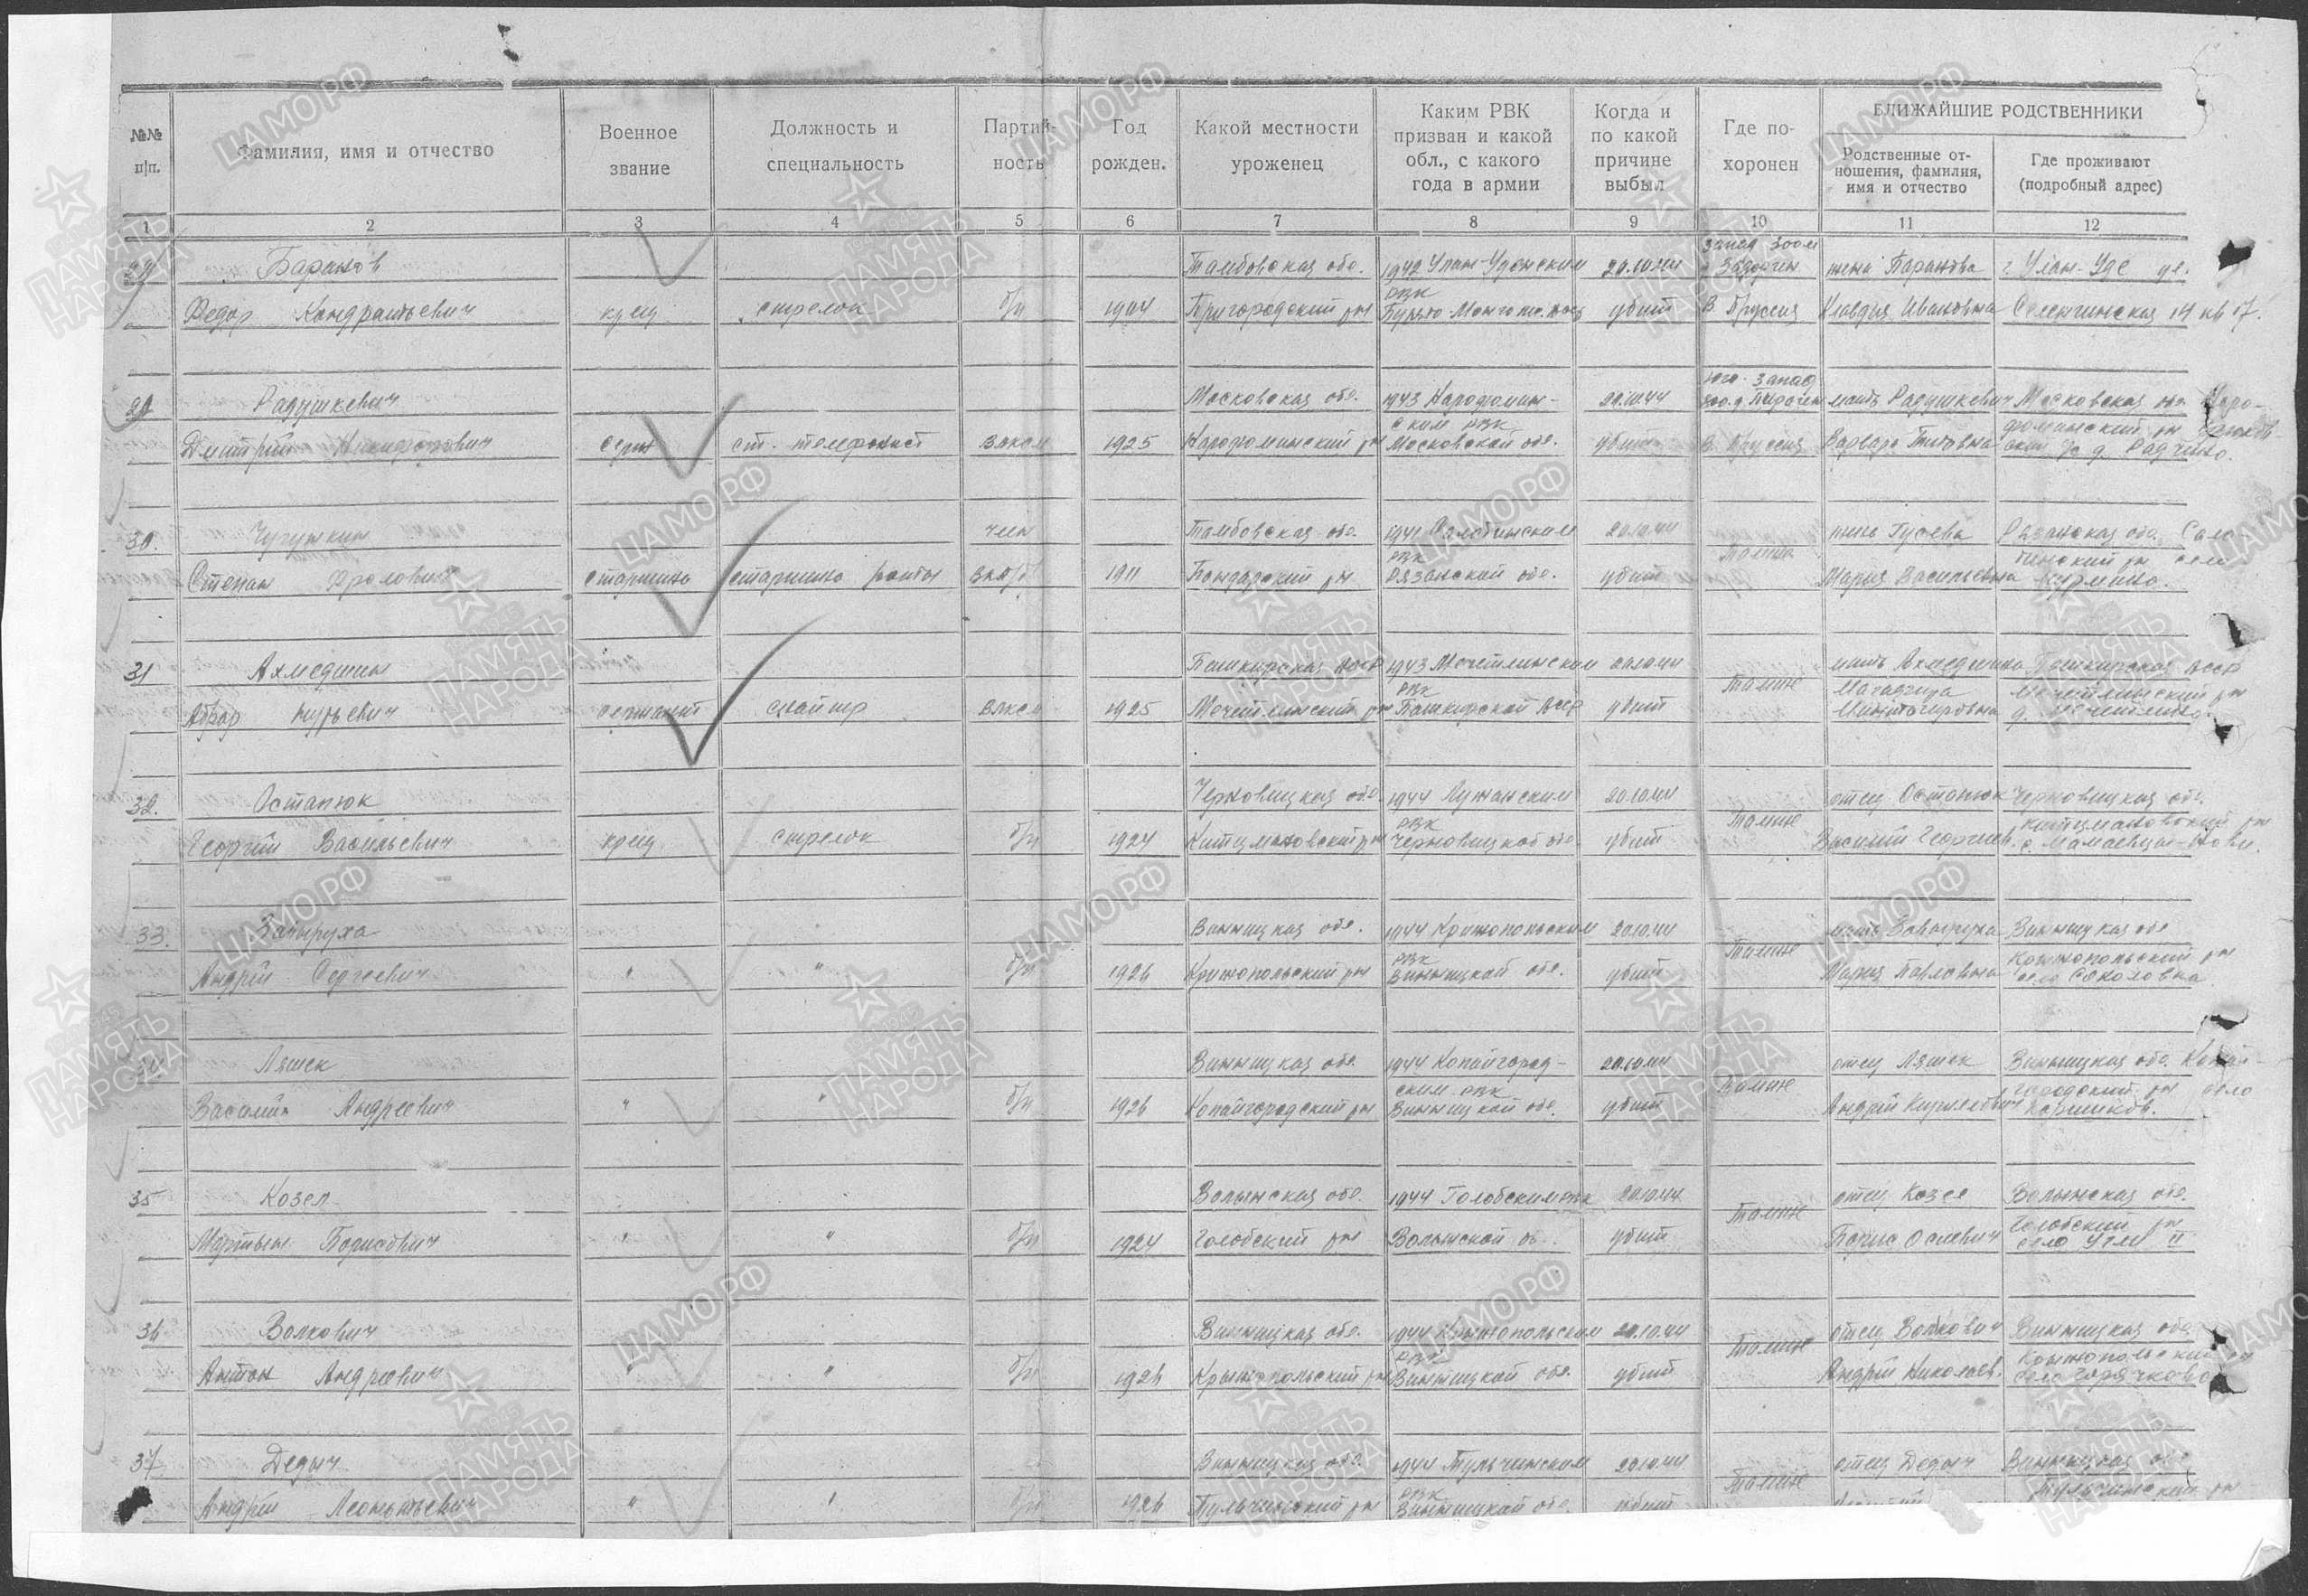 №№ п/п.
Фамилия, имя и отчество
Военное звание
Должность и специальность
Партийность
Год рожден.
Какой местности уроженец
Каким РВК призван и какой обл., с какого года в армии
Когда и по какой причине выбыл
Где похоронен
БЛИЖАЙШИЕ РОДСТВЕННИКИ
Родственные отношения, фамилия, имя и отчество
Где проживают (подробный адрес)
1 2 3 4 5 6 7 8 9 10 11 12
Баранов Тамбовская обл. 1942 Улан-Уденским 20.10.44 запад 300 м жена Баранова г Улан-Уде ул.
Федор Кондратьевич кр-ец стрелок б/п 1904 Пригородский р-н РВК убит В. Пруссия Клавдия Ивановна Селенгинская 14 кв 17.
29 Радушкевич Московская обл. 1943 Нарофомин- 20.10.44 юго-запад мать Радушкевич Московская обл. Наро-
Дмитрий Никифорович серж ст. телефонист влксм 1925 Нарофоминский р-н ским РВК Московской обл. убит В. Пруссия Варвара Титовна фоминский р-н
30. Чугункин член Тамбовская обл. 1941 20.10.44 жена Гусева Рязанская обл.
Степан Фролович старшина старшина роты ВКП/б 1911 Бондарский р-н РВК Рязанской обл. убит Мария Васильевна
31 Ахмедшин Башкирская АССР 1943 Мечетлинским 20.10.44 мать Башкирская АССР
Абрар сержант снайпер влксм 1925 Мечетлинский р-н РВК Башкирской АССР убит Мечетлинский р-н
32. Остапюк Черновицкая обл. 1944 Лужанским 20.10.44 там же отец Остапюк Черновицкая обл.
Георгий Васильевич кр-ец стрелок б/п 1924 Кицмановский р-н РВК Черновицкой обл убит Василий Георгиев. Кицмановский р-н
33. Винницкая обл. 1944 Крижопольским 20.10.44 там же мать Винницкая обл
Андрей Сергеевич " " б/п 1926 Крижопольский р-н РВК Винницкой обл. убит Мария Павловна село Соколовка
Ляшек Винницкая обл. 1944 Копайгород- 20.10.44 там же отец Ляшек Винницкая обл. Копай-
Василий Андреевич " " б/п 1926 Копайгородский р-н ским РВК Винницкой обл. убит Андрей Кириллович городский р-н село
35 Козел Волынская обл. 1944 Голобским РВК 20.10.44 там же отец Козел Волынская обл.
Мартын Борисович " " б/п 1924 Голобский р-н Волынской об. убит Борис Голобский р-н село Угли II
36 Волкович Винницкая обл. 1944 Крыжопольским 20.10.44 там же отец Волкович Винницкая обл
Антон Андреевич " " б/п 1926 Крыжопольский р-н РВК Винницкой обл. убит Андрей Николаев. Крыжопольский р-н село Горячковка
37 Дедыч Винницкая обл. 1944 Тульчинским 20.10.44 там же отец Дедыч Винницкая обл
Андрей Леонтьевич " " б/п 1926 Тульчинский р-н РВК Винницкой обл. убит Тульчинский р-н
ЦАМО.РФ
ПАМЯТЬ НАРОДА